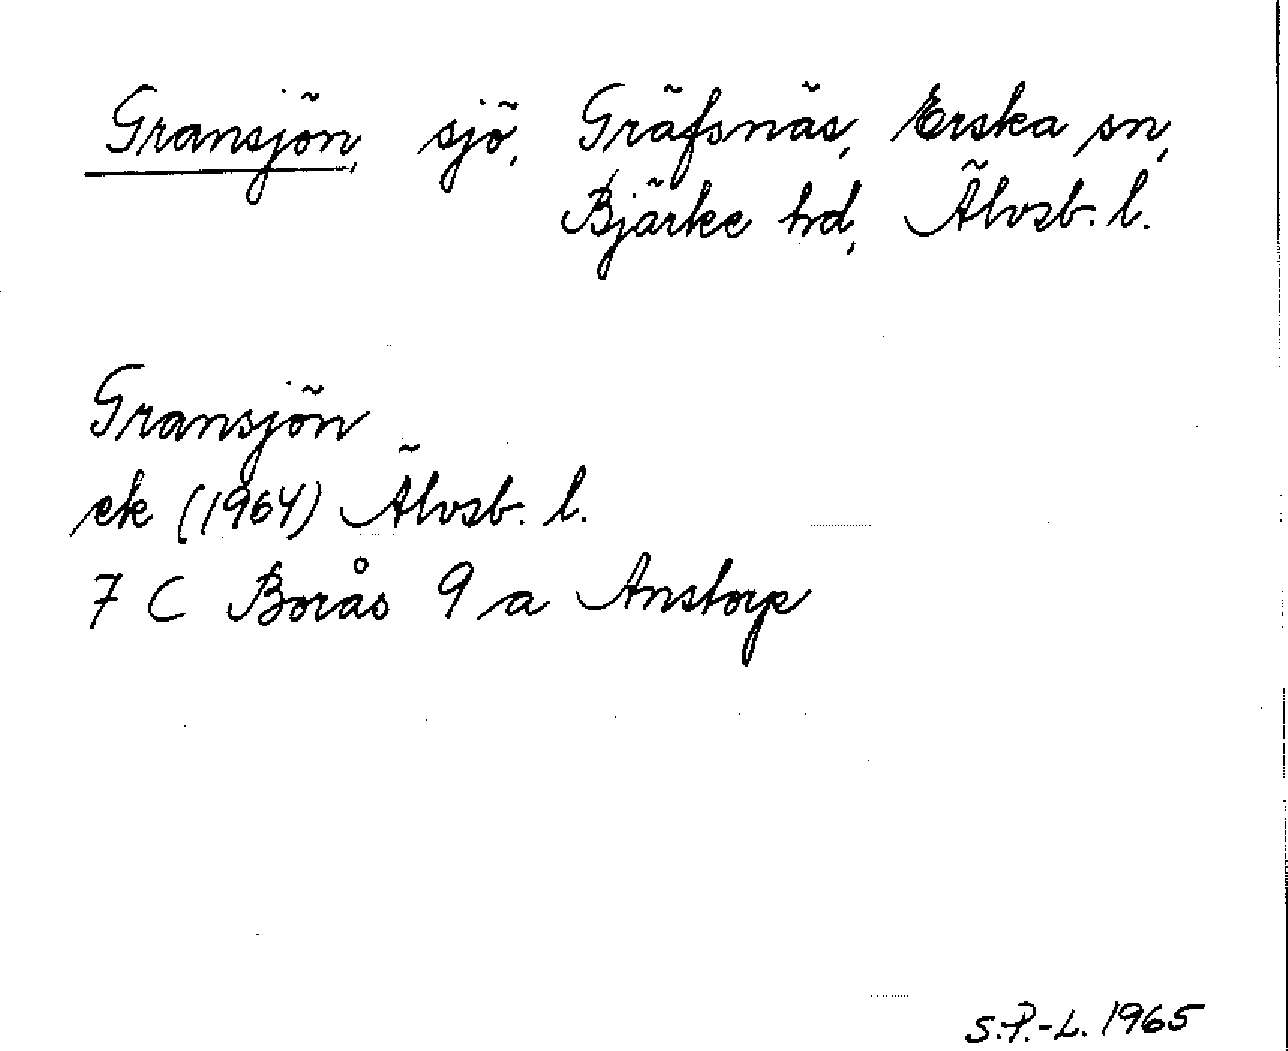 Gransjön, sjö, Gräfsnäs, Erska sn,
Bjärke hd, Älvsb. l.
Gransjön
ek (1964) Älvsb. l.
7 C Borås 9 a Anstorp
S.P.-L. 1965